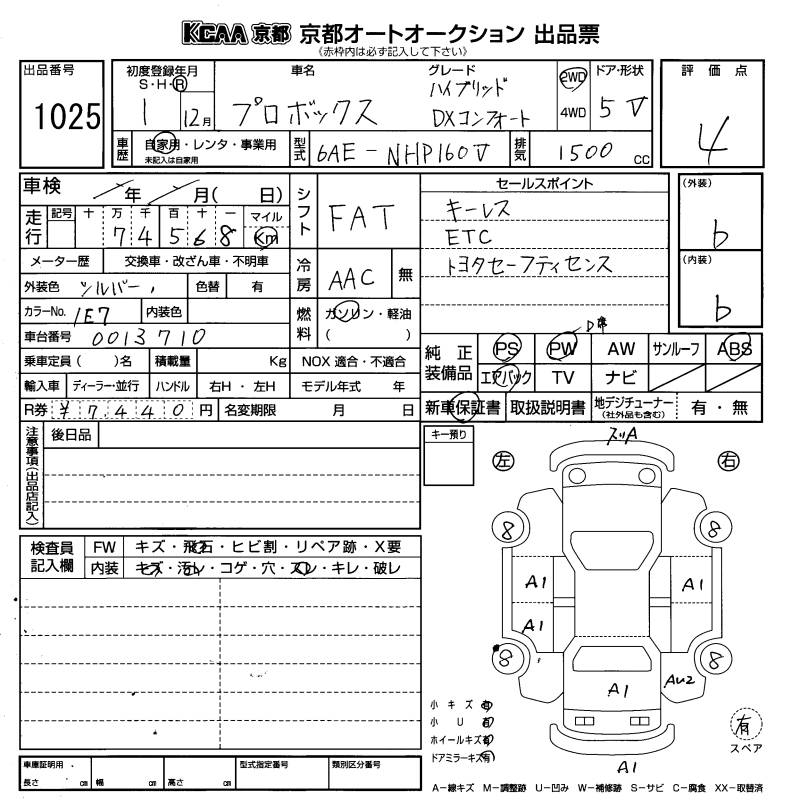 KCAA 京都 京都オートオークション 出品票
《赤枠内は必ず記入して下さい》
出品番号 初度登録年月 車名 グレード 2WD ドア・形状 評価点
S・H・R ハイブリッド
1025 1 12月 プロボックス DXコンフォート 4WD 5 V 4
車歴 自家用・レンタ・事業用 型式 6AE-NHP160V 排気 1500 CC
未記入は自家用
車検 年 月( 日) シフト FAT セールスポイント (外装)
走行 記号 十 万 千 百 十 一 マイル キーレス b
7 4 5 6 8 Km ETC
メーター歴 交換車・改ざん車・不明車 冷房 AAC 無 トヨタセーフティセンス (内装)
外装色 シルバー 色替 有 b
カラーNo. 1E7 内装色 燃料 ガソリン・軽油
( ) D席
車台番号 0013710 純正装備品 PS PW AW サンルーフ ABS
乗車定員( )名 積載量 Kg NOX 適合・不適合 エアバック TV ナビ
輸入車 ディーラー・並行 ハンドル 右H・左H モデル年式 年
R券 ¥7440円 名変期限 月 日 新車保証書 取扱説明書 地デジチューナー 有・無
(社外品も含む)
注意事項(出品店記入) 後日品 キー預り
左 右
検査員記入欄 FW キズ・飛石・ヒビ割・リペア跡・X要
内装 キズ・汚レ・コゲ・穴・スレ・キレ・破レ
ズリA
8 8
A1 A1
A1
8 8
A1 AU2
A1
小キズ 有
小U 有
ホイールキズ 有
ドアミラーキズ 有
有
スペア
車庫証明用 型式指定番号 類別区分番号
長さ cm 幅 cm 高さ cm
A-線キズ M-調整跡 U-凹み W-補修跡 S-サビ C-腐食 XX-取替済